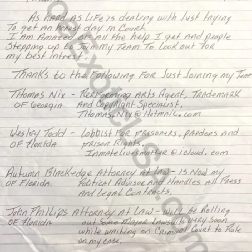 As hard as Life is dealing with Just trying
To get an Honest day in Court.
I am Honored by all the help I get and people
Stepping up to Join my Team To Look out for
my best Interest.
Thanks to the Following For Just Joining my Team
Thomas Nix - Performing Arts Agent, Trademark
of Georgia And Copyright Specialist.
Wesley Todd - Lobbyist for prisoners, pardons and
of Florida prison Rights.
Autumn Blackledge Attorney at Law - Is Now my
of Florida. Political Advisor and Handles All Press
And Legal Contracts.
John Phillips Attorney at Law - Will be Rolling
of Florida out Some
while waiting on Criminal Court to Rule
on my case.